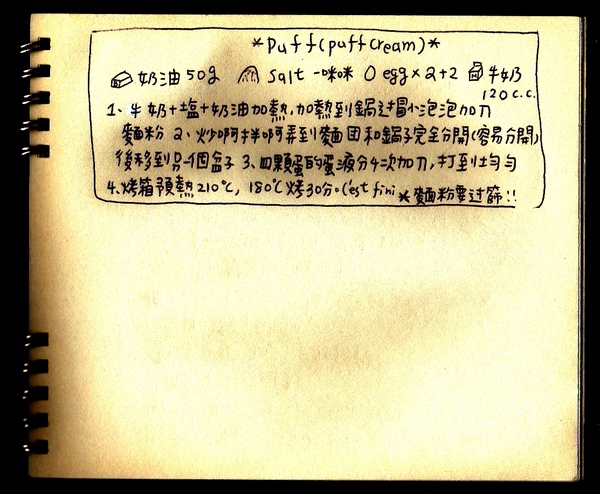 *Puff(puff cream)*
奶油50g salt 一咪咪 egg×2+2 牛奶
120c.c.
1、牛奶+塩+奶油加熱,加熱到鍋边冒小泡泡加入
麵粉 2、炒啊拌啊弄到麵团和鍋子完全分開(容易分開)
後移到另一個盒子 3、四顆蛋的蛋液分4次加入,打到均勻
4.烤箱預熱210℃, 180℃烤30分。C'est fini *麵粉要过篩!!